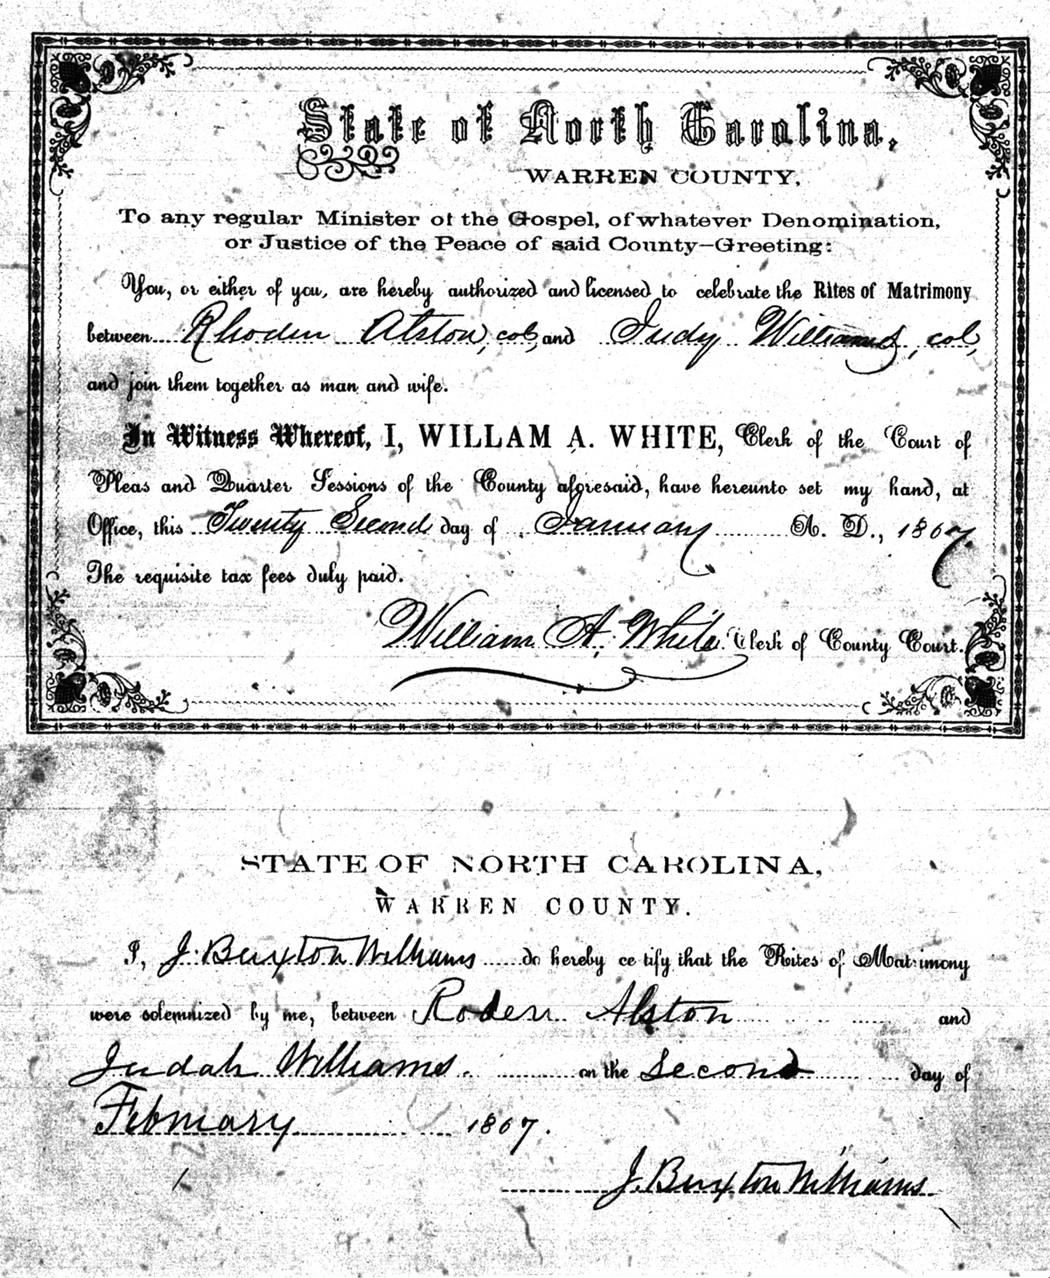 State of North Carolina,
WARREN COUNTY,
To any regular Minister of the Gospel, of whatever Denomination,
or Justice of the Peace of said County—Greeting:
You, or either of you, are hereby authorized and licensed to celebrate the Rites of Matrimony
between Rhoden Alston, col, and Judy Williams, col,
and join them together as man and wife.
In Witness Whereof, I, WILLAM A. WHITE, Clerk of the Court of
Pleas and Quarter Sessions of the County aforesaid, have hereunto set my hand, at
Office, this Twenty Second day of January A. D., 1867.
The requisite tax fees duly paid.
William A. White Clerk of County Court.
STATE OF NORTH CAROLINA,
WARREN COUNTY.
I, J. Buxton Williams do hereby ce tify that the Rites of Matrimony
were solemnized by me, between Roden Alston and
Judah Williams. on the Second day of
February 1867.
J. Buxton Williams